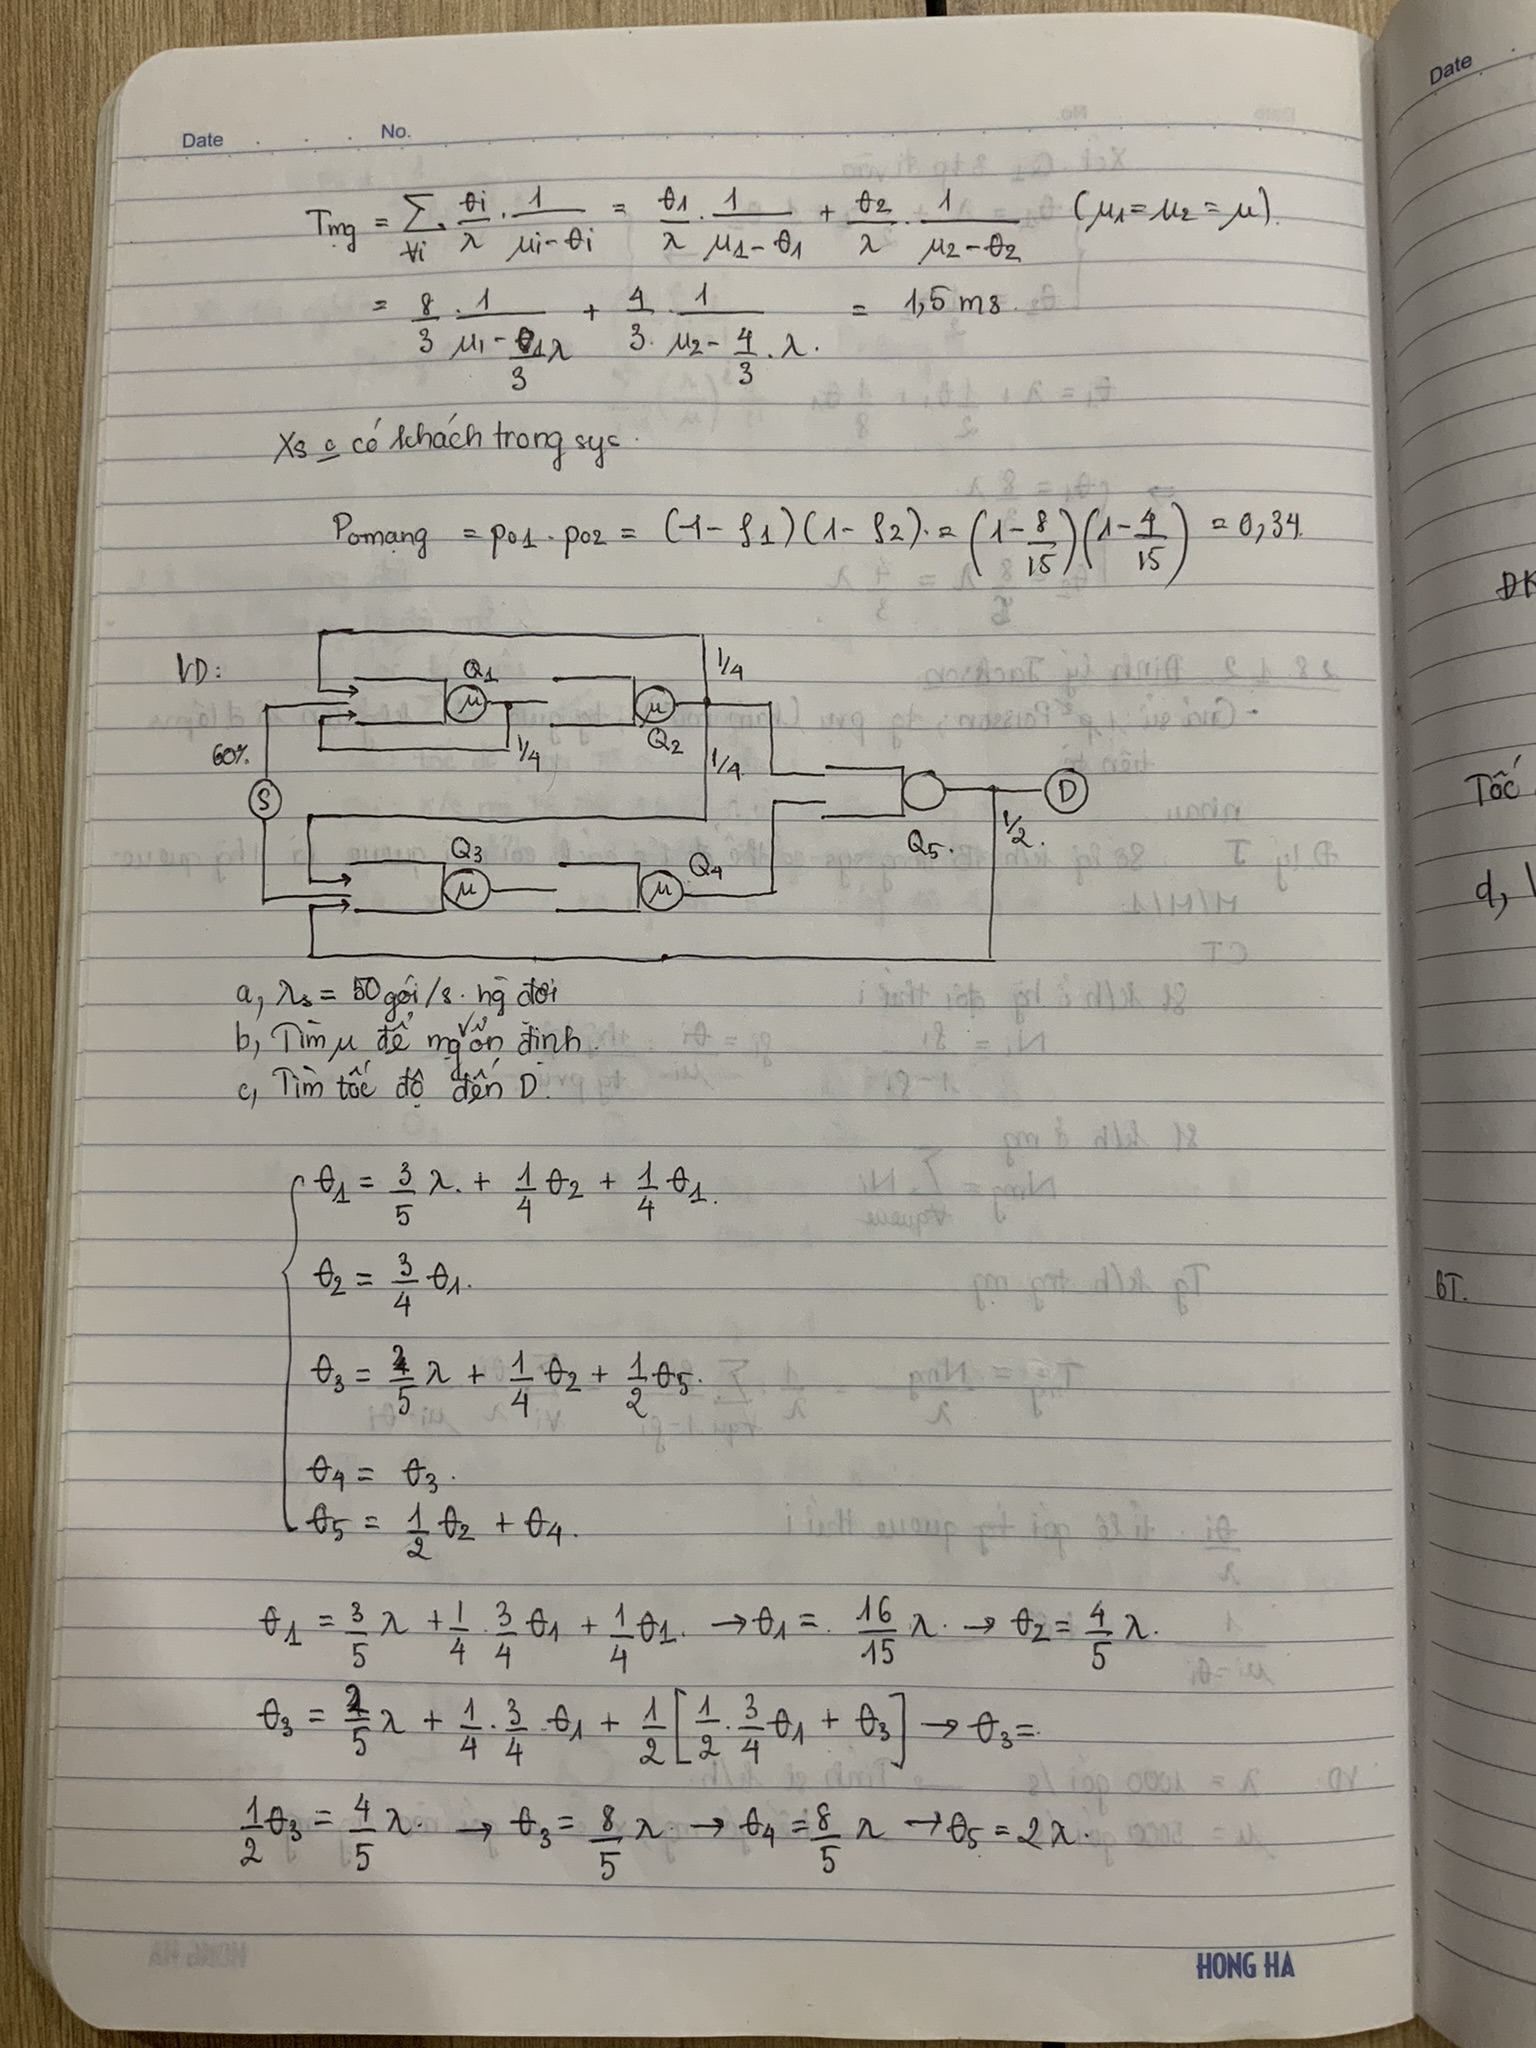 Date No.
Tmg = ∑∀i θi/λ · 1/(μi-θi) = θ1/λ · 1/(μ1-θ1) + θ2/λ · 1/(μ2-θ2) (μ1=μ2=μ).
= 8/3 · 1/(μ1 - 8/3 λ) + 4/3 · 1/(μ2 - 4/3 · λ) = 1,5 ms.
Xs o có khách trong sys.
Pomạng = po1 · po2 = (1-ρ1)(1-ρ2) = (1-8/15)(1-4/15) = 0,34.
VD:
Q1 μ 1/4
μ Q2 1/4
1/4
60%
S
Q3 μ
μ Q4
Q5.
1/2.
D
a, λs = 50 gói/s. hg đợi
b, Tìm μ để mg vẫn ổn định.
c, Tìm tốc độ đến D.
θ1 = 3/5 λ. + 1/4 θ2 + 1/4 θ1.
θ2 = 3/4 θ1.
θ3 = 2/5 λ + 1/4 θ2 + 1/2 θ5.
θ4 = θ3.
θ5 = 1/2 θ2 + θ4.
θ1 = 3/5 λ + 1/4 · 3/4 θ1 + 1/4 θ1. → θ1 = 16/15 λ. → θ2 = 4/5 λ.
θ3 = 2/5 λ + 1/4 · 3/4 · θ1 + 1/2 [1/2 · 3/4 θ1 + θ3] → θ3 =
1/2 θ3 = 4/5 λ. → θ3 = 8/5 λ → θ4 = 8/5 λ → θ5 = 2λ.
HONG HA
Date
Tốc
d,
BT.